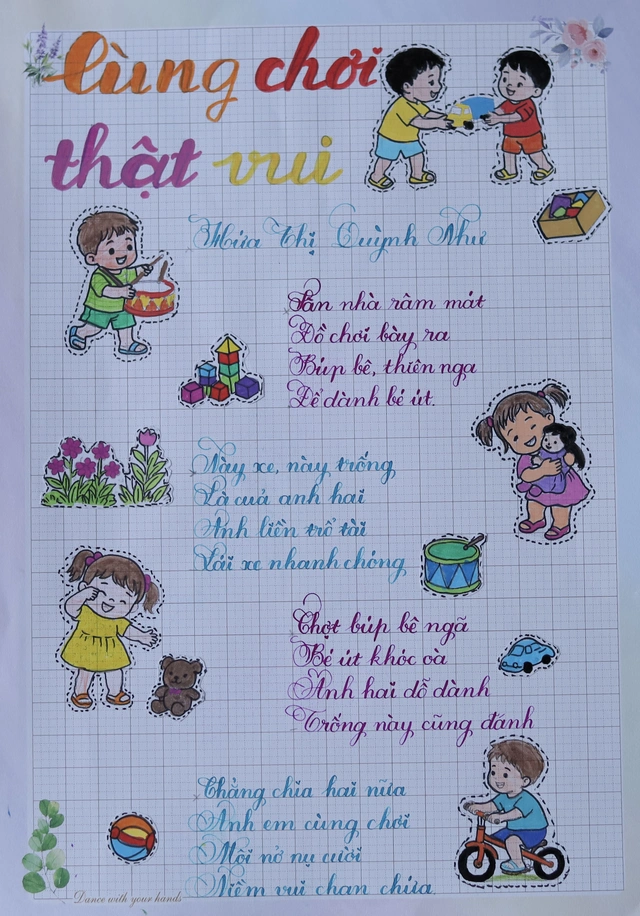 Cùng chơi
thật vui
Hứa Thị Quỳnh Như
Sân nhà râm mát
Đồ chơi bày ra
Búp bê, thiên nga
Để dành bé út.
Này xe, này trống
Là của anh hai
Anh liền trổ tài
Lái xe nhanh chóng
Chợt búp bê ngã
Bé út khóc oà
Anh hai dỗ dành
Trống này cũng đánh
Chẳng chia hai nữa
Anh em cùng chơi
Môi nở nụ cười
Niềm vui chan chứa.
Dance with your hands